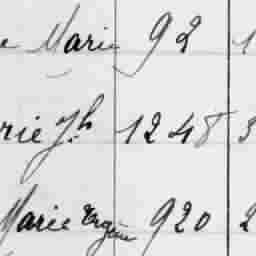 e Marie 92 1
rie Jh 1248 3
Marie Eugène 920 2